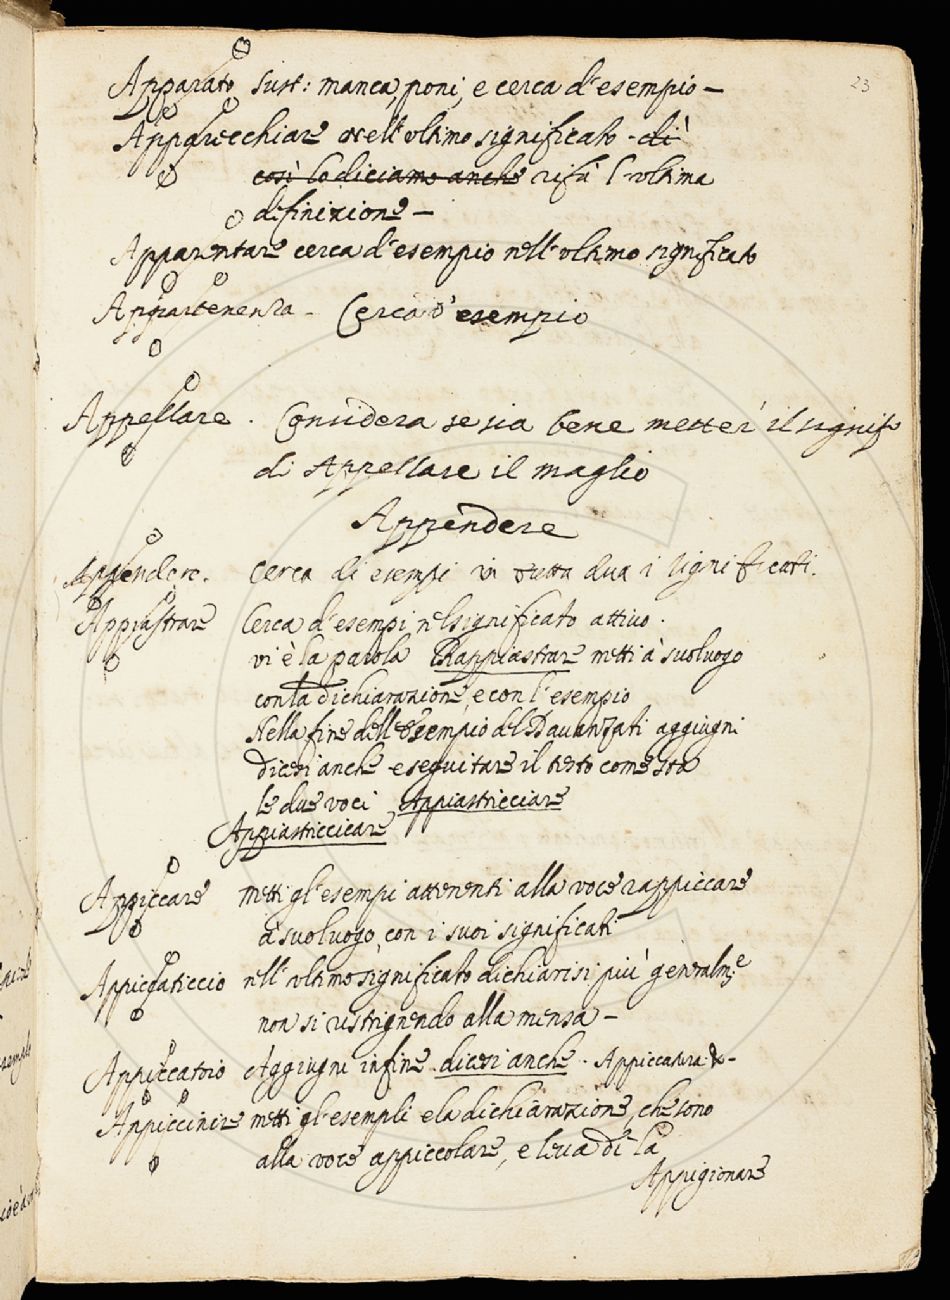 23
Apparato sust: manca, poni, e cerca d'esempio –
Apparecchiare nell'ultimo significato - di
così lo diciamo anche rifà l'ultima
difinizione –
Apparentare cerca d'esempio nell'ultimo significato
Appartenenza - Cerca d'esempio
Appellare . Considera se sia bene metter il signif.
di Appellare il maglio
Appendere
Appendere. Cerca di esempi in tutta dua i significati.
Appiastrare Cerca d'esempi nel significato attiuo.
vi è la parola Rappiastrare metti à suo luogo
con la dichiarazione, e con l'esempio
Nella fine dell'Esempio del Dauanzati aggiugni
dicesi anche e seguitare il testo come sta
le due voci Appiastricciare
Appiastriccicare
Appiccare metti gl'esempi attenenti alla voce rappiccare
à suo luogo con i suoi significati
Appiccaticcio nell'ultimo significato dichiarisi più generalm.e
non si ristrignendo alla mensa –
Appiccatoio Aggiugni in fine dicesi anche . Appiccatura &-
Appiccinire metti gl'esempli e la dichiarazione, che sono
alla voce appiccolare, e leua di là
Appigionare